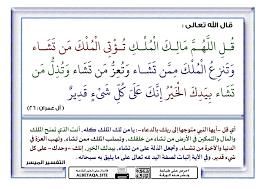 قال الله تعالى :
قُلِ اللَّهُمَّ مَالِكَ الْمُلْكِ تُؤْتِي الْمُلْكَ مَن تَشَاء
وَتَنزِعُ الْمُلْكَ مِمَّن تَشَاء وَتُعِزُّ مَن تَشَاء وَتُذِلُّ مَن
تَشَاء بِيَدِكَ الْخَيْرُ إِنَّكَ عَلَىَ كُلِّ شَيْءٍ قَدِيرٌ
(آل عمران : ٢٦)
أي قل -أيها النبي متوجها إلى ربك بالدعاء- : يا من لك الملك كله، أنت الذي تمنح الملك
والمال والتمكين في الأرض من تشاء من خلقك، وتسلب الملك ممن تشاء، وتهب العزة في
الدنيا والآخرة من تشاء، وتجعل الذلة على من تشاء، بيدك الخير، إنك -وحدك- على كل
شيء قدير. وفي الآية إثبات لصفة اليد لله تعالى على ما يليق به سبحانه.
التفسير الميسر
ALBETAQA.SITE